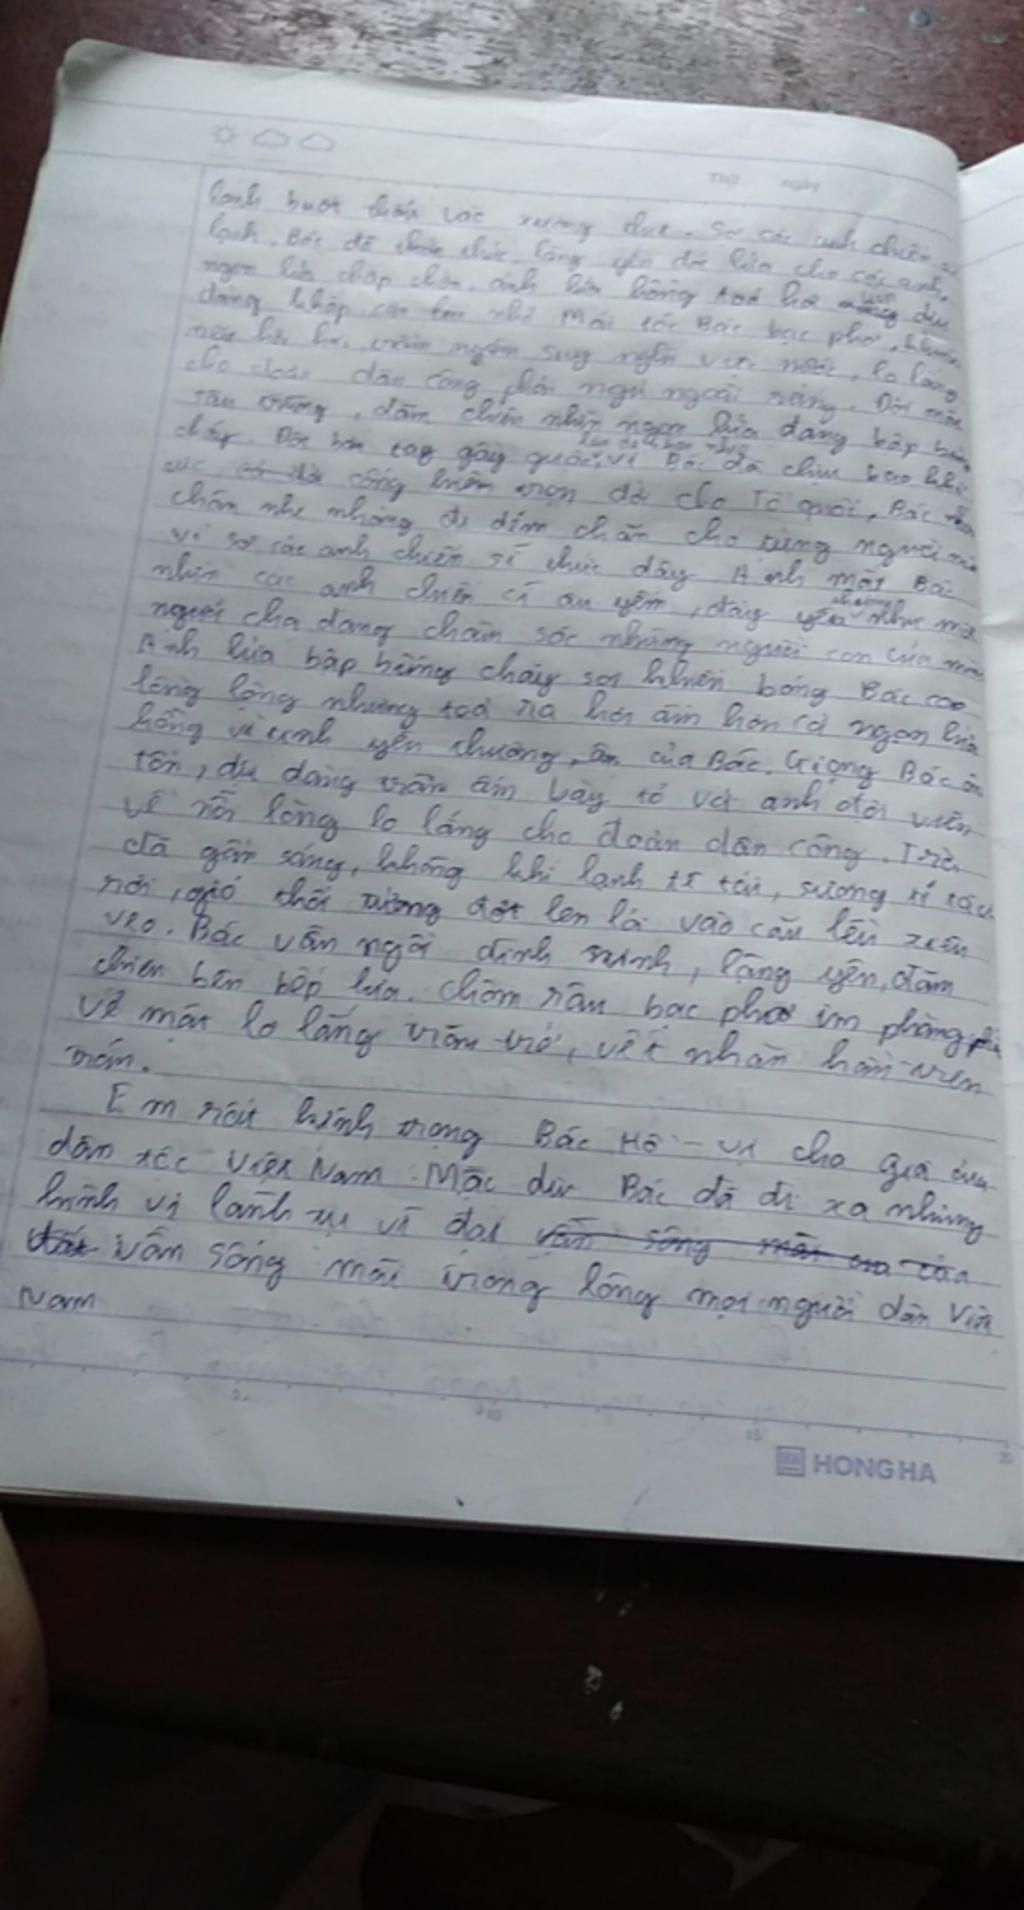 Thứ ngày
lạnh buốt thấu vào xương thịt. Sợ các anh chiến sĩ
lạnh. Bác đã thức lặng yên đốt lửa cho các anh.
ngọn lửa chập chờn. ánh lửa hồng toả hơi dịu
dàng khắp căn lều nhỏ Mái tóc Bác bạc phơ,
nước, lo lắng
cho đoàn dân công phải ngủ ngoài rừng. Đôi mắt
đăm chiêu nhìn ngọn lửa đang bập bùng
cháy. Đôi bàn tay gầy guộc vì Bác đã chịu bao khổ
cực cống hiến trọn đời cho Tổ quốc, Bác
chân nhẹ nhàng đi dém chăn cho từng người một
vì sợ các anh chiến sĩ thức dậy Ánh mắt Bác
nhìn các anh chiến sĩ âu yếm, đầy yêu thương như một
người cha đang chăm sóc những người con của mình
Ánh lửa bập bùng cháy soi khiến bóng Bác cao
lồng lộng nhưng toả ra hơi ấm hơn cả ngọn lửa
hồng vì tình yêu thương, của Bác. Giọng Bác ôn
tồn, dịu dàng trầm ấm bày tỏ với anh đội viên
về nỗi lòng lo lắng cho đoàn dân công. Trời
đã gần sáng, không khí lạnh tê tái, sương tí tách
rơi, gió thổi từng đợt len lỏi vào căn lều xiêu
vẹo. Bác vẫn ngồi đinh ninh, lặng yên, đăm
chiêu bên bếp lửa. Chòm râu bạc phơ im phăng phắc
vẻ mặt lo lắng trăn trở, vết nhăn hằn trên
trán.
Em rất kính trọng Bác Hồ - vị cha già của
dân tộc Việt Nam. Mặc dù Bác đã đi xa nhưng
hình vị lãnh tụ vĩ đại vẫn sống mãi
vẫn sống mãi trong lòng mọi người dân Việt
Nam
5 10 15 20
HONG HA